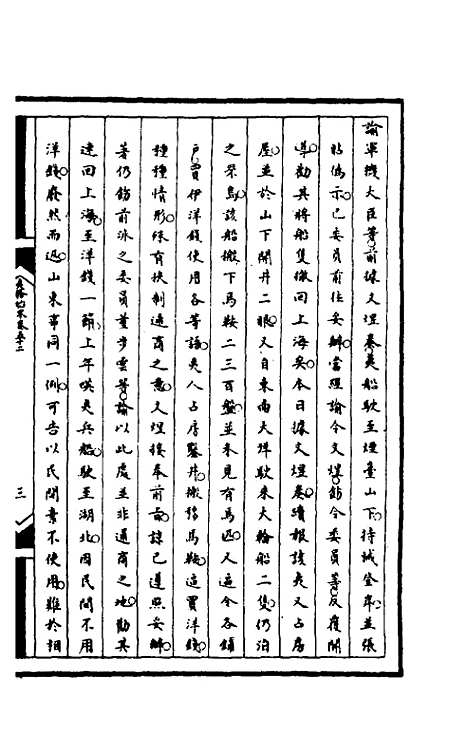 諭軍機大臣等前據文煜奏夷船駛至煙臺山下持械登岸並張
貼偽示已委員前往妥辦當經諭令文煜飭令委員等反覆開
導勸其將船隻撤回上海矣本日據文煜奏續報該夷又占房
屋並於山下開井二眼又自東南大洋駛來大輪船二隻仍泊
之罘島該船搬下馬鞍二三百盤並未見有馬匹又逼令各鋪
戶買伊洋錢使用各等語夷人占房鑿井搬移馬鞍逼買洋錢
種種情形殊有扶制通商之意文煜接奉前旨諒已遵照妥辦
著仍飭前派之委員董步雲等諭以此處並非通商之地勸其
速回上海至洋錢一節上年暎夷兵船駛至湖北因民間不用
洋錢廢然而返山東事同一例可告以民間素不使用難於相
夷務始末卷五十二
三